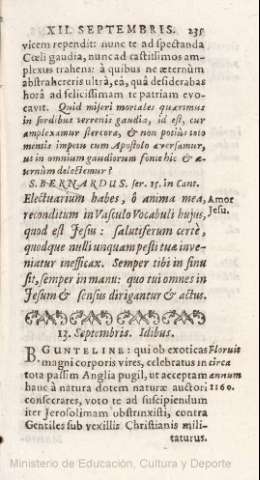 XII. SEPTEMBRIS. 235
vicem rependit: nunc te ad spectanda
Cœli gaudia, nunc ad castissimos am-
plexus trahens: à quibus ne æternùm
abstrahereris ultrà, eâ, quâ desiderabas
horâ ad felicissimam te patriam evo-
cavit. Quid miseri mortales quærimus
in sordibus terrenis gaudia, id est, cur
amplexamur stercora, & non potiùs toto
mentis impetu cum Apostolo aversamur,
ut in omnium gaudiorum fonte hîc & æ-
ternùm delectemur?
S. BERNARDUS. ser. 15. in Cant.
Electuarium habes, ô anima mea, Amor
reconditum in Vasculo Vocabuli hujus, Jesu.
quod est Jesu: salutiferum certè,
quodque nulli unquam pesti tuæ inve-
niatur inefficax. Semper tibi in sinu
sit, semper in manu: quo tui omnes in
Jesum & sensus dirigantur & actus.
13. Septembris. Idibus.
B. GUNTELINE: qui ob exoticas Floruit
magni corporis vires, celebratus in circa
tota passim Anglia pugil, ut acceptam annum
hanc à natura dotem naturæ auctori 1160.
consecrares, voto te ad suscipiendum
iter Jerosolimam obstrinxisti, contra
Gentiles sub vexillis Christianis mili-
taturus.
Ministerio de Educación, Cultura y Deporte